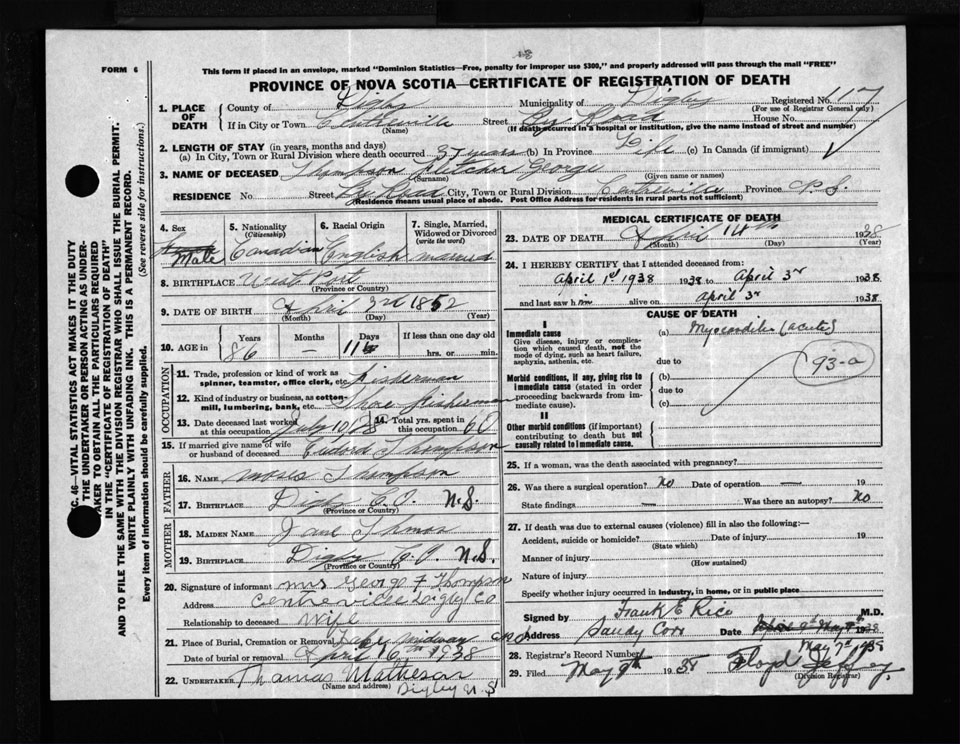 FORM 6
This form if placed in an envelope, marked "Dominion Statistics—Free, penalty for improper use $300," and properly addressed will pass through the mail "FREE"
PROVINCE OF NOVA SCOTIA—CERTIFICATE OF REGISTRATION OF DEATH
1. PLACE OF DEATH
County of Digby Municipality of Digby Registered No. 117
(For use of Registrar General only)
If in City or Town Centreville Street Road House No.
(Name) (If death occurred in a hospital or institution, give the name instead of street and number)
2. LENGTH OF STAY (in years, months and days)
(a) In City, Town or Rural Division where death occurred years (b) In Province Life (c) In Canada (if immigrant)
3. NAME OF DECEASED Thompson Fletcher George
(Surname) (Given name or names)
RESIDENCE No. Street Road City, Town or Rural Division Centreville Province N.S.
(Residence means usual place of abode. Post Office Address for residents in rural parts not sufficient)
C. 46—VITAL STATISTICS ACT MAKES IT THE DUTY
THE UNDERTAKER OR PERSON ACTING AS UNDER-
TAKER TO OBTAIN ALL THE PARTICULARS REQUIRED
IN THE "CERTIFICATE OF REGISTRATION OF DEATH"
AND TO FILE THE SAME WITH THE DIVISION REGISTRAR WHO SHALL ISSUE THE BURIAL PERMIT.
WRITE PLAINLY WITH UNFADING INK. THIS IS A PERMANENT RECORD.
Every item of information should be carefully supplied. (See reverse side for instructions.)
4. Sex
Male
5. Nationality
(Citizenship)
Canadian
6. Racial Origin
English
7. Single, Married, Widowed or Divorced
(write the word)
married
8. BIRTHPLACE West Port
(Province or Country)
9. DATE OF BIRTH April 3rd 1852
(Month) (Day) (Year)
10. AGE in Years Months Days If less than one day
86 — 11 hrs. or min.
OCCUPATION
11. Trade, profession or kind of work as
spinner, teamster, office clerk, etc. Fisherman
12. Kind of industry or business, as cotton-
mill, lumbering, bank, etc. Shore Fisherman
13. Date deceased last worked at this occupation July 10
14. Total yrs. spent in this occupation 60
15. If married give name of wife
or husband of deceased Thompson
FATHER
16. NAME Thompson
17. BIRTHPLACE Digby Co. N.S.
MOTHER
18. MAIDEN NAME Jane
19. BIRTHPLACE Digby Co. N.S.
(Province or Country)
20. Signature of informant Mrs George F Thompson
Address Centreville Digby Co
Relationship to deceased Wife
21. Place of Burial, Cremation or Removal Midway
Date of burial or removal April 16th 1938
22. UNDERTAKER Thomas Matheson
(Name and address) Digby N.S.
MEDICAL CERTIFICATE OF DEATH
23. DATE OF DEATH April 14th 1938
(Month) (Day) (Year)
24. I HEREBY CERTIFY that I attended deceased from:
April 1st 1938 1938 to April 3rd 1938
and last saw him alive on April 3rd 1938
CAUSE OF DEATH
I
Immediate cause
Give disease, injury or complica-
tion which caused death, not the
mode of dying, such as heart failure,
asphyxia, asthenia, etc.
(a) Myocarditis (acute)
93-a
due to
Morbid conditions, if any, giving rise to
immediate cause (stated in order
proceeding backwards from im-
mediate cause).
(b)
due to
(c)
II
Other morbid conditions (if important)
contributing to death but not
causally related to immediate cause.
25. If a woman, was the death associated with pregnancy?
26. Was there a surgical operation? No Date of operation — 19
State findings — Was there an autopsy? No
27. If death was due to external causes (violence) fill in also the following:—
Accident, suicide or homicide? Date of injury 19
(State which)
Manner of injury
(How sustained)
Nature of injury
Specify whether injury occurred in industry, in home, or in public place
Signed by Frank E Rice M.D.
Address Sandy Cove Date 1938
May 7th 1938
28. Registrar's Record Number
29. Filed May 9th 1938 Floyd Jeffrey
(Division Registrar)